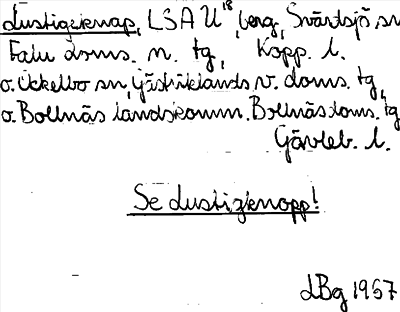 Lustigzknap, LSA U¹⁸, berg, Svärdsjö sn
Falu doms. n. tg, Kopp. l.
o. Ockelbo sn, Gästriklands v. doms. tg,
o. Bollnäs landskomm. Bollnäs doms. tg
Gävleb. l.
Se Lustigknopp!
LBg 1967